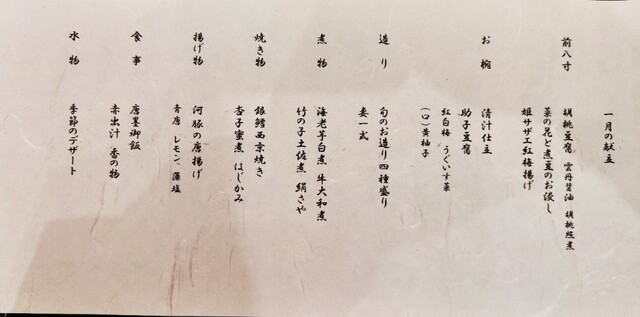 一月の献立
前八寸
胡桃豆腐 雲丹醤油 胡桃照煮
菜の花と煮豆のお浸し
姫サザエ紅梅揚げ
お椀
清汁仕立
助子豆腐
紅白梅 うぐいす菜
(口)黄柚子
造り
旬のお造り四種盛り
妻一式
煮物
海老芋白煮 牛大和煮
竹の子土佐煮 絹さや
焼き物
銀鱈西京焼き
杏子蜜煮 はじかみ
揚げ物
河豚の唐揚げ
青唐 レモン 藻塩
食事
唐墨御飯
赤出汁 香の物
水物
季節のデザート